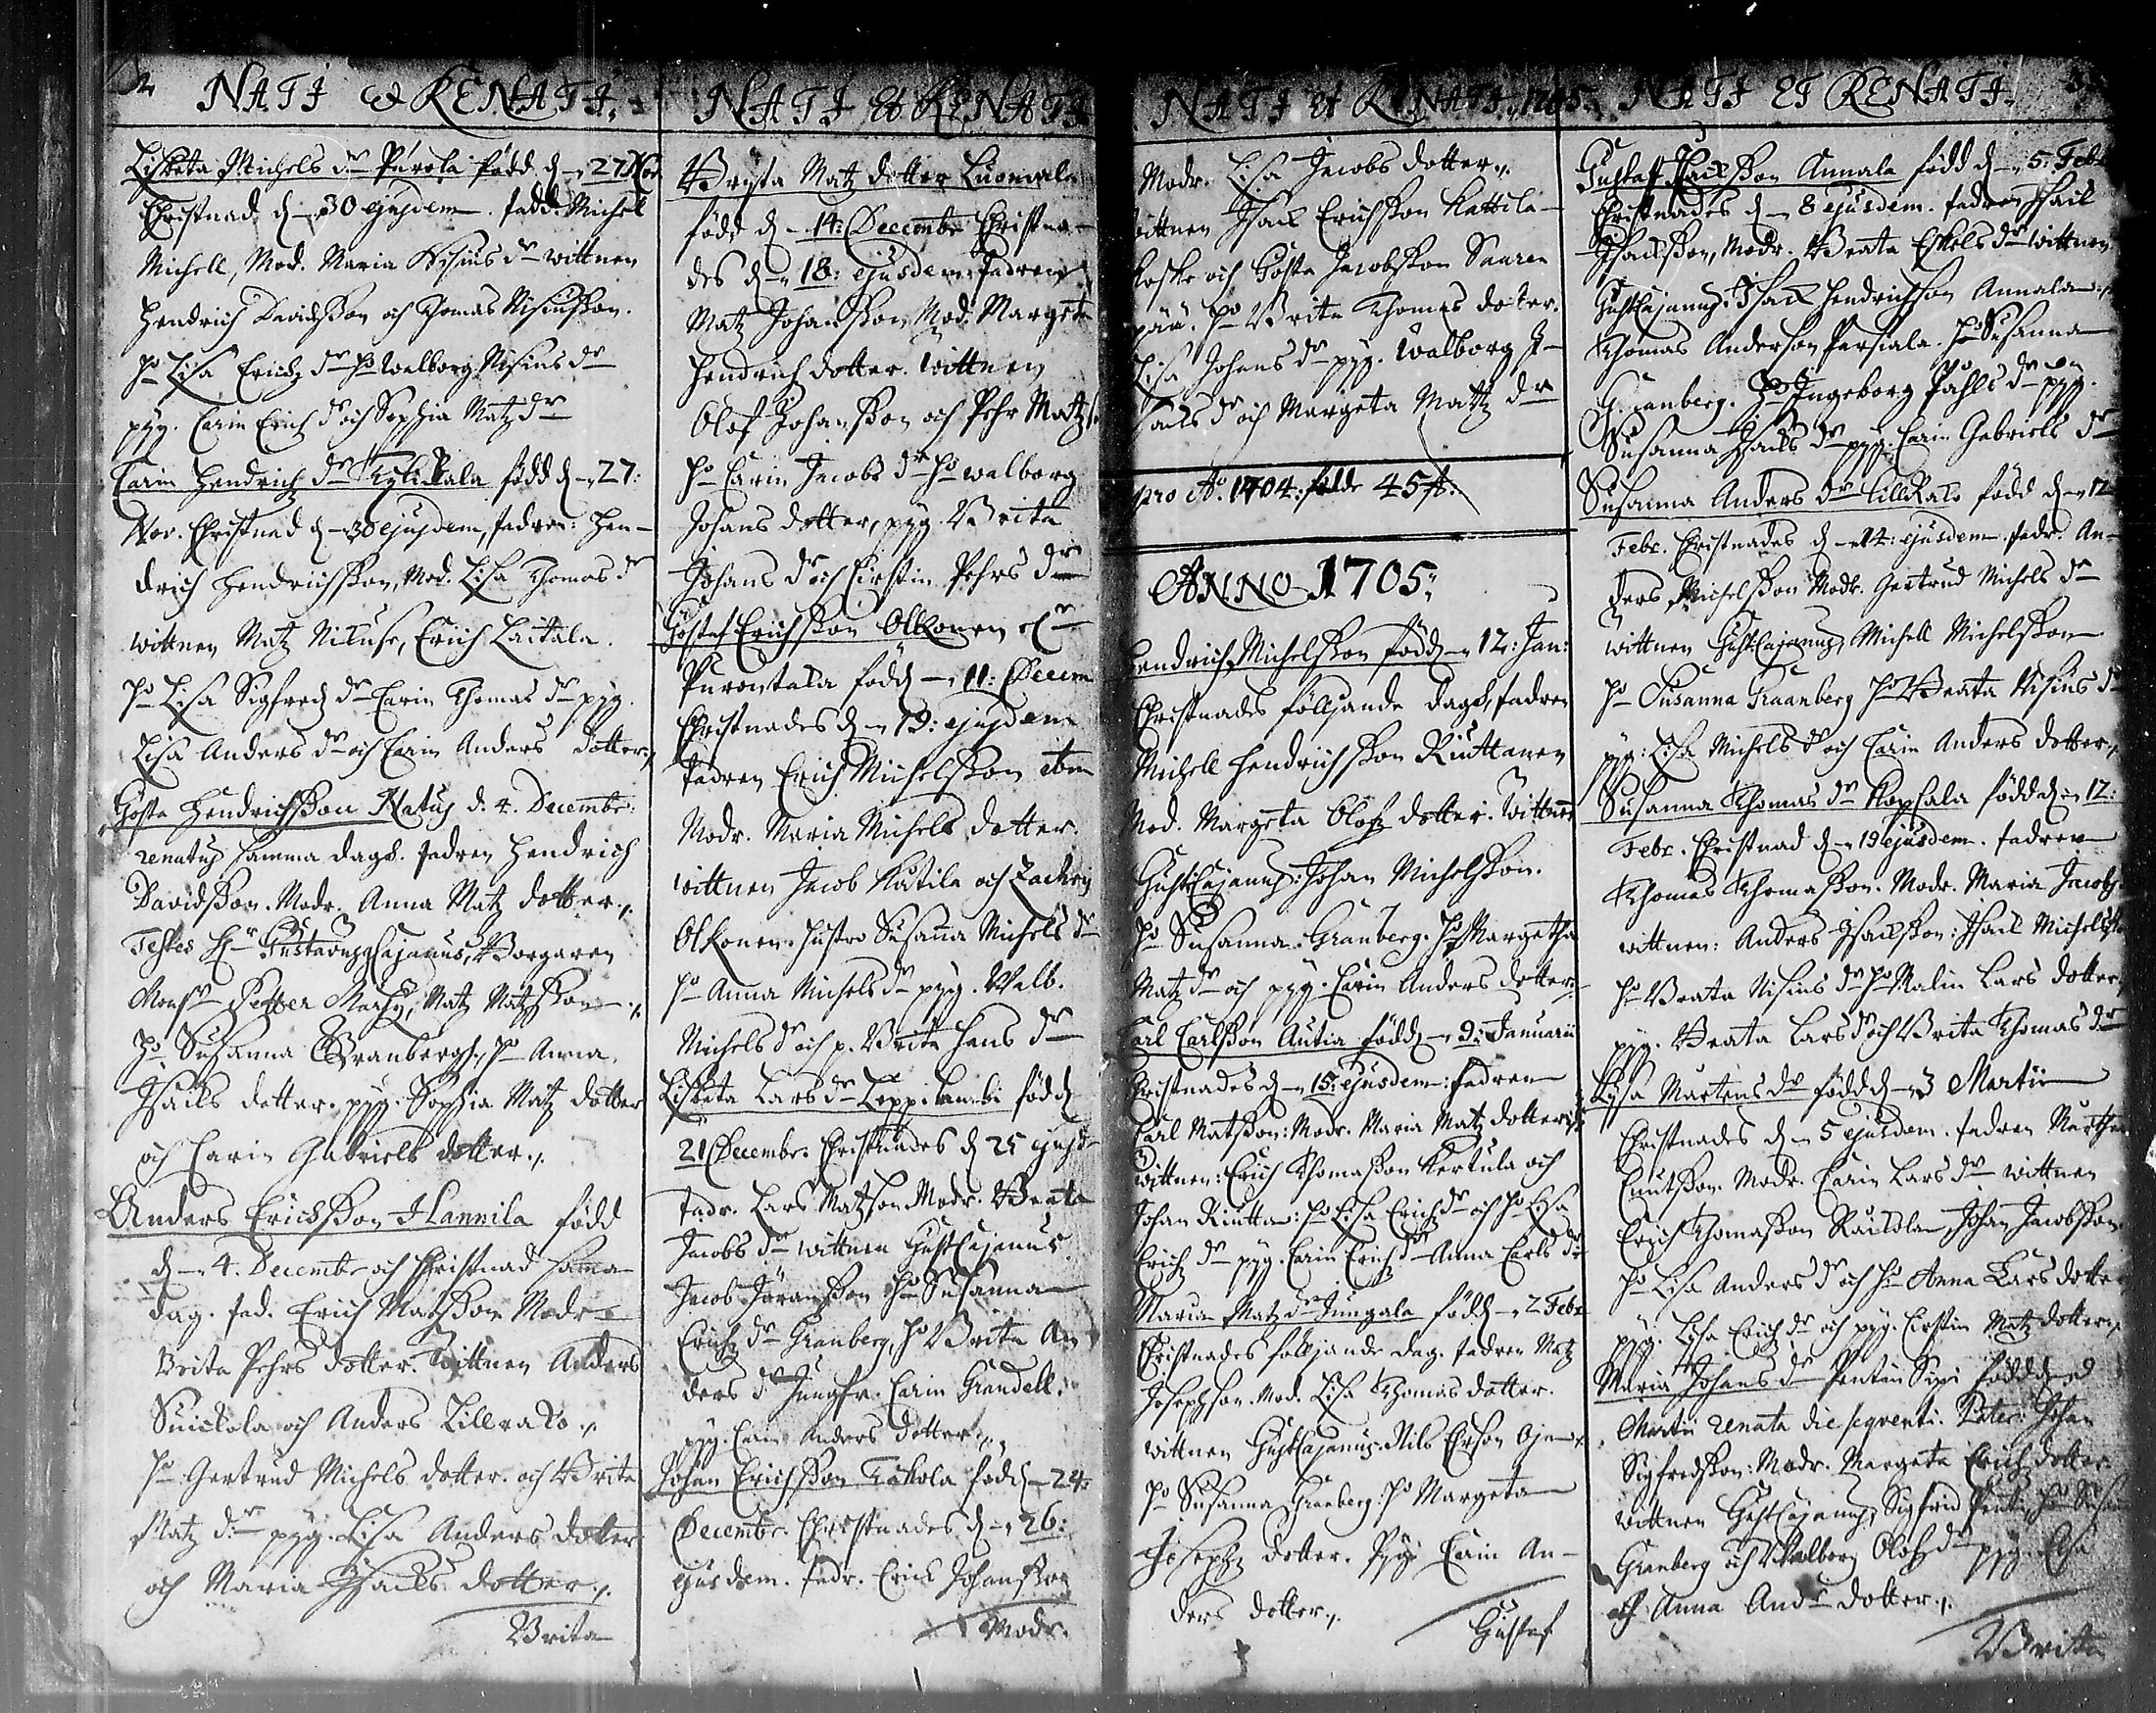 NATI & RENATI.
Lisbeta Michels dr Purola född d. 27 Nov.
Christnad d. 30 ejusdem. fadr. Michel
Michell, Mod. Maria Nisius dr wittnen
Hendrich Davidsson och Thomas Nisiusson.
ho Lisa Erichz dr ho Walborg Nisius dr
pyg. Carin Erich dr och Sophia Matz dr
Carin Hendrich dr född d. 27:
Nov. Christnad d. 30 ejusdem, fadren: Hen-
drich Hendrichsson, Mod. Lisa Thomas dr
wittnen Matz Erich Laitala.
ho Lisa Sigfred dr Carin Thomas dr pyg.
Lisa Anders dr och Carin Anders dotter
Gösta Hendrichsson Natus d. 4. Decembr:
renatus samma dagh. fadren Hendrich
Davidsson. Modr. Anna Matz dotter.
Testes Hr Gustavus Cajanus, Borgaren
Monsr Petter Matz Matzson
ho Susanna Granbergh, ho Anna
Isacks dotter. pyg. Sophia Matz dotter
och Carin Gabriels dotter.
Anders Ericksson Hannila född
d. 4. Decembr och Christnad samma
dag. fad. Erich Matsson Modr
Brita Pehrs dotter. Wittnen Anders
och Anders Lillrako
ho Gertrud Michels dotter. och Brita
Matz dr pyg. Lisa Anders dotter
och Maria Isacks dotter
Brita
NATI Et RENATI
Brijta Matz dotter Luomala
född d. 14: Decembr Christna-
des d. 18: ejusdem: fadren
Matz Johansson, Mod. Margeta
Hendrich dotter. Wittnen
Olof Johansson och Pehr Matz
ho Carin Jacobs dr ho Walborg
Johans dotter, pyg. Brita
Johans dr och Cirstin Pehrs dr
Gustaf Erichsson Olkonen
Purontala född 11: Decem
Christnades d. 19: ejusdem
fadren Erich Michelsson
Modr. Maria Michels dotter.
wittnen Jacob Katila och Zachris
Olkonen. hustro Susanna Michels dr
ho Anna Michels dr pyg. Walb.
Michels dr och p. Brita Hans dr
Lisbeta Lars dr Leppilambi född
21 December Christnades d 25 ejusd
fadr. Lars Matzson Modr. Beata
Jacobs dr wittnen Gust Cajanus
Jacob Jöransson ho Susanna
Erichz dr Granberg, ho Brita An
ders dr Jungfr. Carin Grandell.
pyg. Carin Anders dotter.
Johan Erichsson Kokola född 24
Decembr. Christnades d. 26:
ejusdem. fadr. Erich Johansson
Modr.
NATI Et RENATI, 1705.
Modr. Lisa Jacobs dotter
wittnen Isack Erichsson Kattila-
koski och Gösta Jacobsson Sauren
pää. ho Brita Thomas doter.
Lisa Johans dr pyg. Walborg I-
sacks dr och Margeta Mattz dr
pro Ao. 1704: födde 45 st.
ANNO 1705
Hendrich Michelsson född 12: Jan:
Christnades följande dagh, fadren
Michell Hendrichsson Riuttanen
Mod. Margeta Olofz dotter. Wittnen
Gust: Cajanus: Johan Michelsson.
ho Susanna Granberg. ho Margetha
Matz dr och pyg. Carin Anders dotter
Carl Carlsson Autia född 9: Januarii
Christnades d. 15: ejusdem: fadren
Carl Matsson: Modr. Maria Matz dotter
wittnen: Erich Thomasson Kertula och
Johan Riutta: ho Lisa Erichz dr och ho Lisa
Erichz dr pyg. Carin Erichz dr Anna Carls dr
Maria Matz dr Jungala född 2 Febr
Christnades följande dag. fadren Matz
Josephson. Mod. Lisa Thomas dotter.
wittnen Gust Cajanus: Nils Erson
ho Susanna Granberg: ho Margeta
Josephz dotter. Pyg. Carin An-
ders dotter
Gustaf
NATI ET RENATI.
Gustaf Isacksson Annala född d. 5. Febr
Christnades d. 8 ejusdem. fadren Isack
Isacksson, Modr. Beata Eskels dr wittnen
Gust Cajanus. Isack Hendrichsson Annala
Thomas Anderson Parsiala. ho Susanna
Granberg. ho Ingeborg Påhls dr
Susanna Isacks dr pyg. Carin Gabriels dr
Susanna Anders dr Lillrako född d. 12
Febr. Christnades d. 14: ejusdem. fadr. An-
ders Michelsson Modr. Gertrud Michels dr
wittnen Gust Cajanus, Michell Michelsson
ho Susanna Graanberg ho Beata Nisius dr
pyg: Lisa Michels dr och Carin Anders dotter
Susanna Thomas dr Kopsala född d. 12:
Febr. Christnad d. 19 ejusdem. fadren
Thomas Thomasson. Modr. Maria Jacobz
wittnen: Anders Isacksson: Isack Michelsson
ho Beata Nisius dr ho Malin Lars dotter
pyg. Beata Lars dr och Brita Thomas dr
Lisa Martens dr född d. 3 Martii
Christnades d. 5 ejusdem. fadren Marthen
Cnutsson. Modr. Carin Lars dr wittnen
Erich Thomasson Johan Jacobsson
ho Lisa Anders dr och ho Anna Lars dotter
pyg. Lisa Erich dr och pyg. Cirstin Matz dotter
Maria Johans dr Pentin Sipi född d
Martii renata die sequenti. Pater: Johan
Sigfredsson: Modr. Margeta Erichz dotter
wittnen Gust Cajanus, Sigfrid Pentti, ho Susan
Granberg och Walborg Olofz dr pyg. Lisa
och Anna Andr dotter
Britta